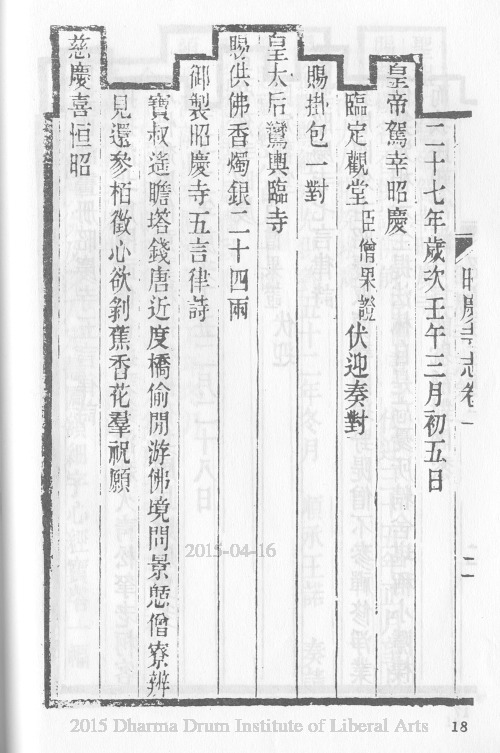 昭慶寺志卷一
二
二十七年歲次壬午三月初五日
皇帝駕幸昭慶
臨定觀堂臣僧果證伏迎奏對
賜掛包一對
皇太后鸞輿臨寺
賜供佛香燭銀二十四兩
御製昭慶寺五言律詩
寶叔遙瞻塔錢唐近度橋偷閒游佛境問景憩僧寮辨
見還參栢徵心欲剝蕉香花羣祝願
慈慶喜恒昭
2015-04-16
2015 Dharma Drum Institute of Liberal Arts
18